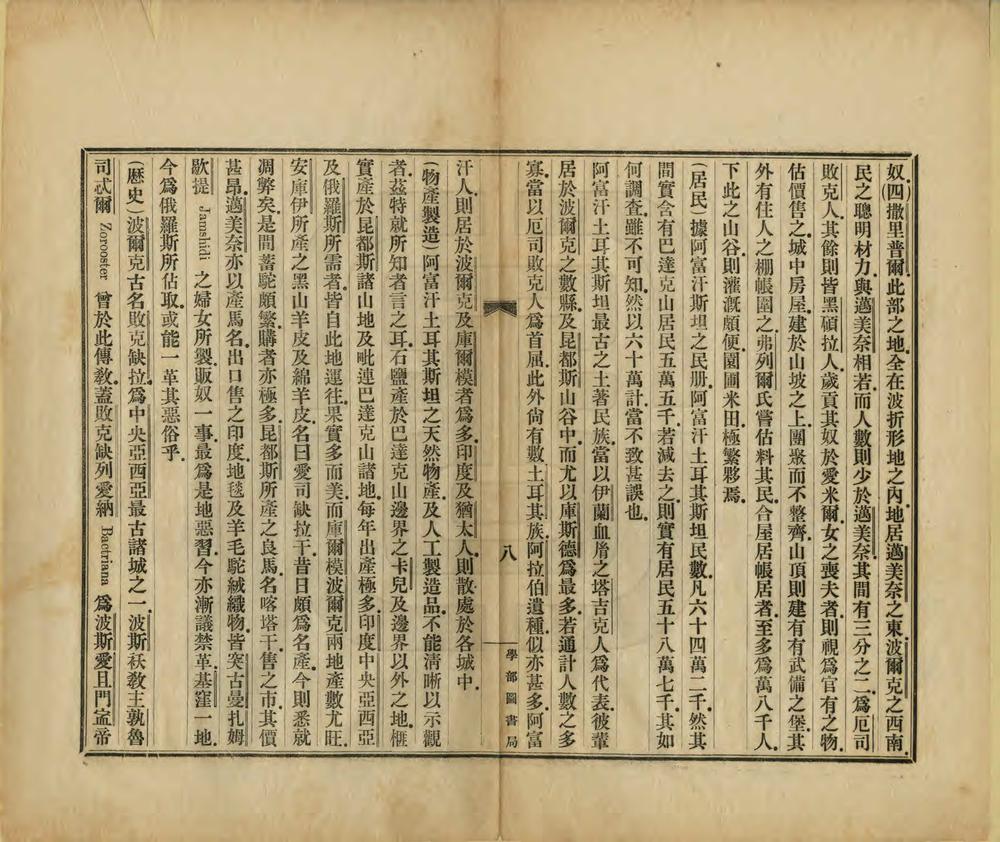 奴.(四撒里普爾)此部之地.全在波折形地之內.地居邁美奈之東.波爾克之西南.
民之聰明材力.與邁美奈相若.而人數則少於邁美奈.其間有三分之二.爲厄司
敗克人.其餘則皆黑碩拉人.歲貢其奴於愛米爾.女之喪夫者.則視爲官有之物.
估價售之.城中房屋.建於山坡之上.團聚而不整齊.山頂則建有有武備之堡.其
外有住人之棚帳圍之.弗列爾氏嘗估料其民.合屋居帳居者.至多爲萬八千人.
下此之山谷.則灌漑頗便.園圃米田.極繁夥焉.
(居民)據阿富汗斯坦之民册.阿富汗土耳其斯坦民數.凡六十四萬二千.然其
間實含有巴達克山居民五萬五千.若減去之.則實有居民五十八萬七千.其如
何調查.雖不可知.然以六十萬計.當不致甚誤也.
阿富汗土耳其斯坦最古之土著民族.當以伊蘭血屑之塔吉克人爲代表.彼輩
居於波爾克之數縣.及昆都斯山谷中.而尤以庫斯德爲最多.若通計人數之多
寡.當以厄司敗克人爲首屈.此外尙有數土耳其族.阿拉伯遺種.似亦甚多.阿富
八
學部圖書局
汗人.則居於波爾克及庫爾模者爲多.印度及猶太人.則散處於各城中.
(物產製造)阿富汗土耳其斯坦之天然物產.及人工製造品.不能淸晰以示觀
者.茲特就所知者言之耳.石鹽產於巴達克山邊界之卡兒.及邊界以外之地.榧
實產於昆都斯諸山地.及毗連巴達克山諸地.每年出產極多.印度中央亞西亞
及俄羅斯所需者.皆自此地運往.果實多而美.而庫爾模波爾克兩地產數尤旺.
安庫伊所產之黑山羊皮及綿羊皮.名曰愛司缺拉干.昔日頗爲名產.今則悉就
凋弊矣.是間蓄駝頗繁.購者亦極多.昆都斯所產之良馬.名喀塔干.售之市.其價
甚昂.邁美奈亦以產馬名.出口售之印度.地毯及羊毛駝絨織物.皆突古曼扎姆
歇提 Jamshidi 之婦女所製.販奴一事.最爲是地惡習.今亦漸議禁革.基窪一地.
今爲俄羅斯所佔取.或能一革其惡俗乎.
(歷史)波爾克古名敗克缺拉.爲中央亞西亞最古諸城之一.波斯祆敎主孰魯
司忒爾 Zoroster 曾於此傳敎.蓋敗克缺列愛納 Bactriana 爲波斯愛且門宓帝